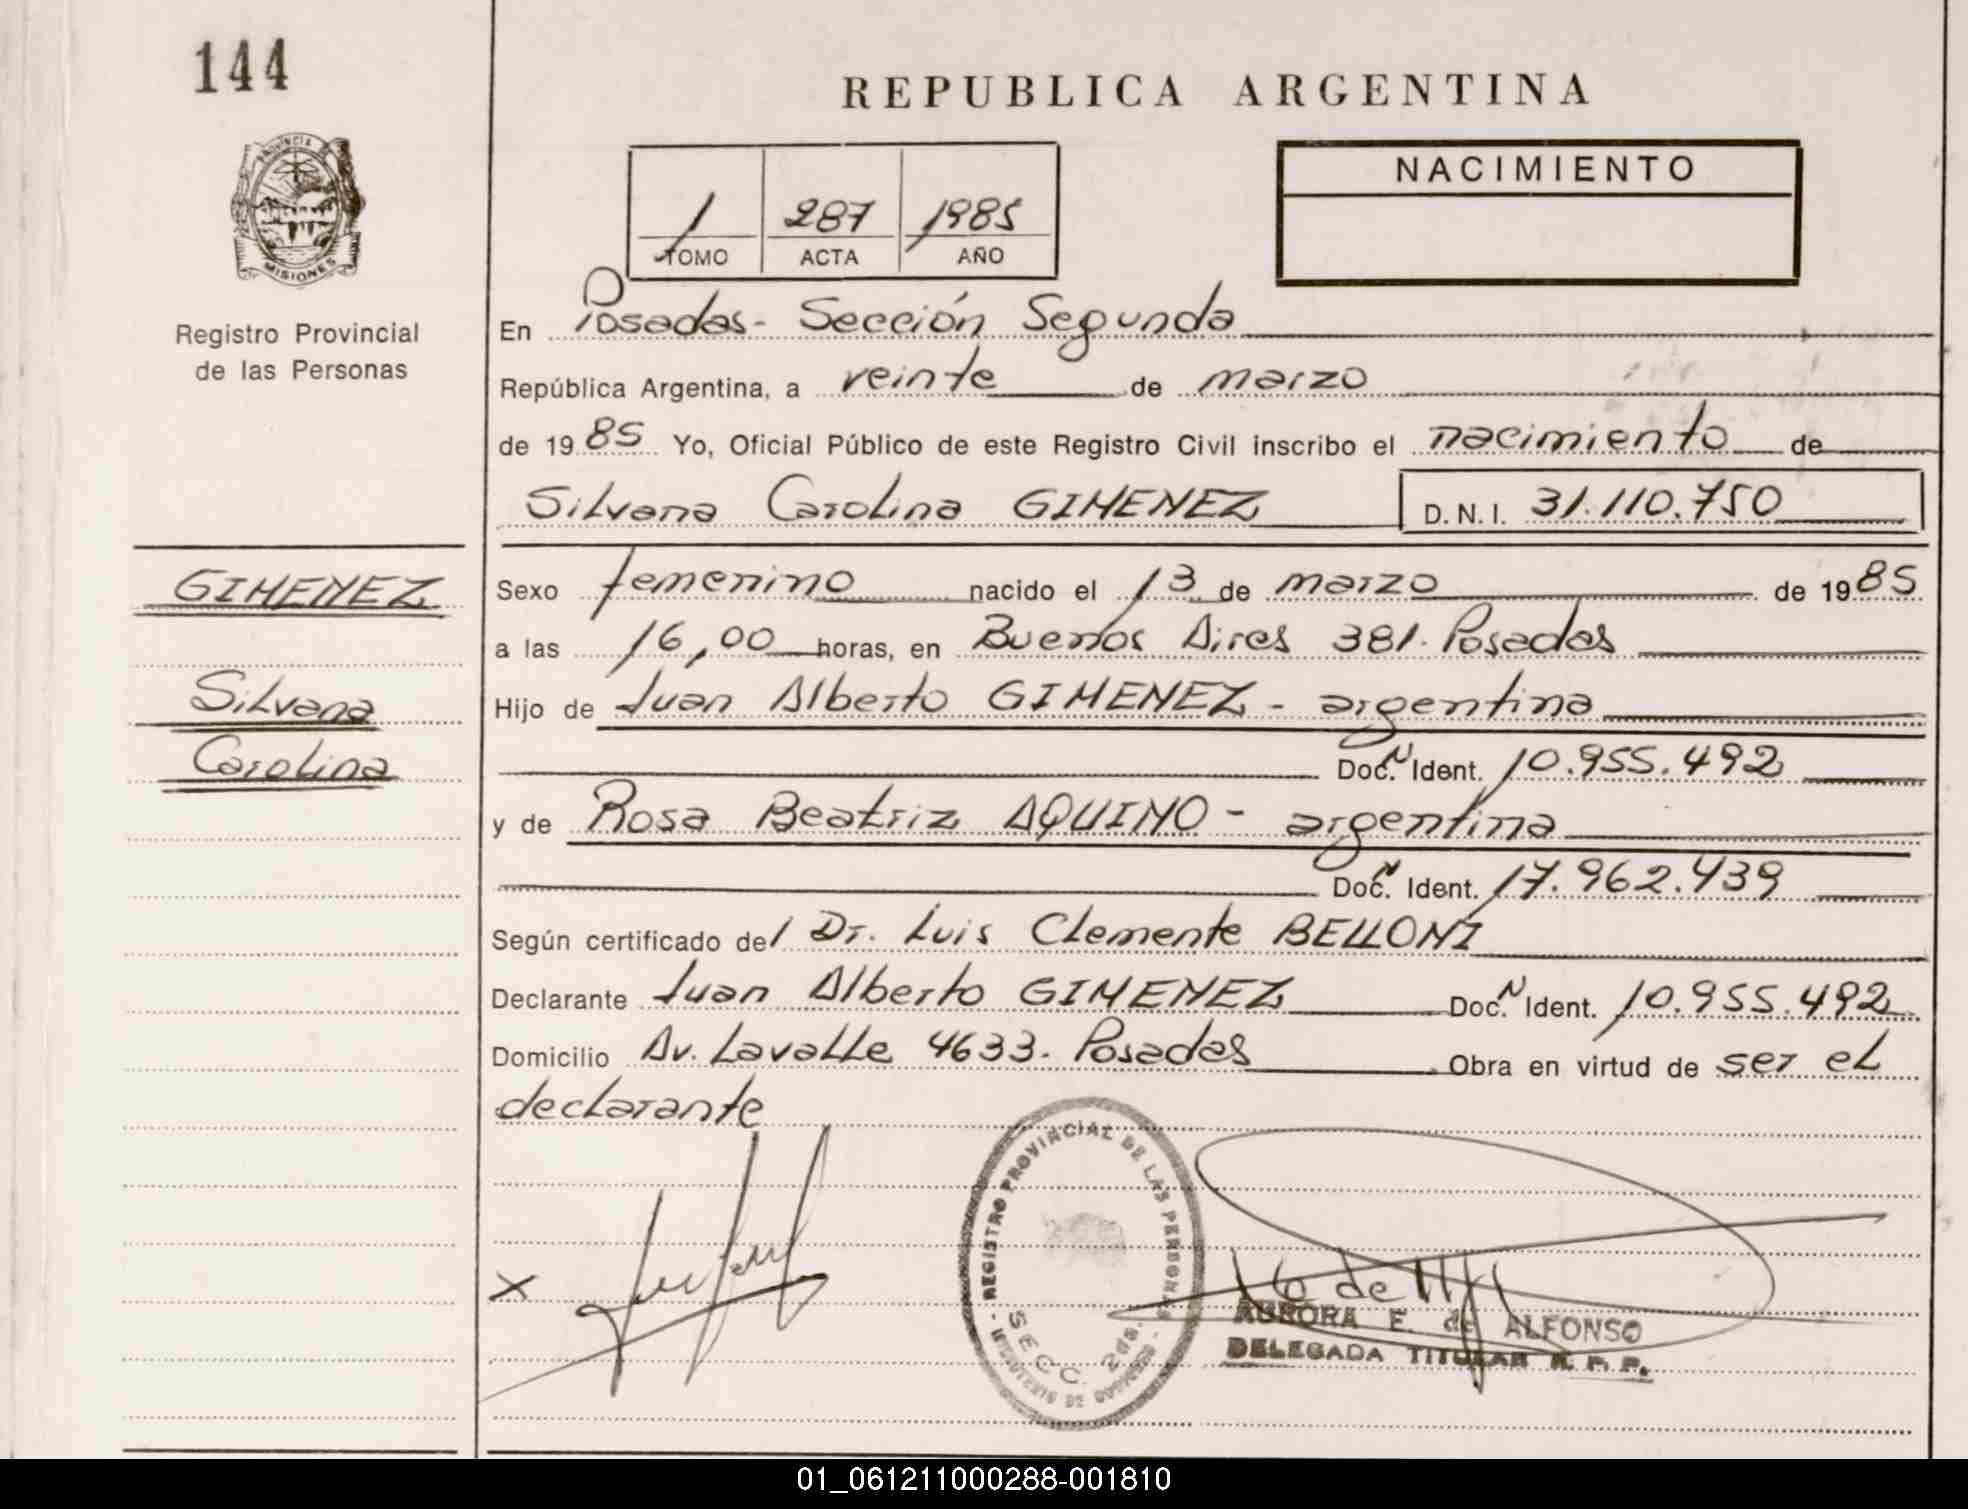 144
REPUBLICA ARGENTINA
NACIMIENTO
1 287 1985
TOMO ACTA AÑO
PROVINCIA DE
MISIONES
Registro Provincial
de las Personas
En Posadas - Sección Segunda
República Argentina, a veinte de marzo
de 1985 Yo, Oficial Público de este Registro Civil inscribo el nacimiento de
Silvana Carolina GIMENEZ D.N.I. 31.110.750
GIMENEZ
Silvana
Carolina
Sexo femenino nacido el 13 de marzo de 1985
a las 16,00 horas, en Buenos Aires 381. Posadas
Hijo de Juan Alberto GIMENEZ - argentina
Doc. N Ident. 10.955.492
y de Rosa Beatriz AQUINO - argentina
Doc. N Ident. 17.962.439
Según certificado del Dr. Luis Clemente BELLONI
Declarante Juan Alberto GIMENEZ Doc. N Ident. 10.955.492
Domicilio Av. Lavalle 4633. Posadas Obra en virtud de ser el
declarante
REGISTRO PROVINCIAL DE LAS PERSONAS
SECC. 2da.
MINISTERIO DE GOBIERNO
AURORA E. de ALFONSO
DELEGADA TITULAR R. P. P.
01_061211000288-001810